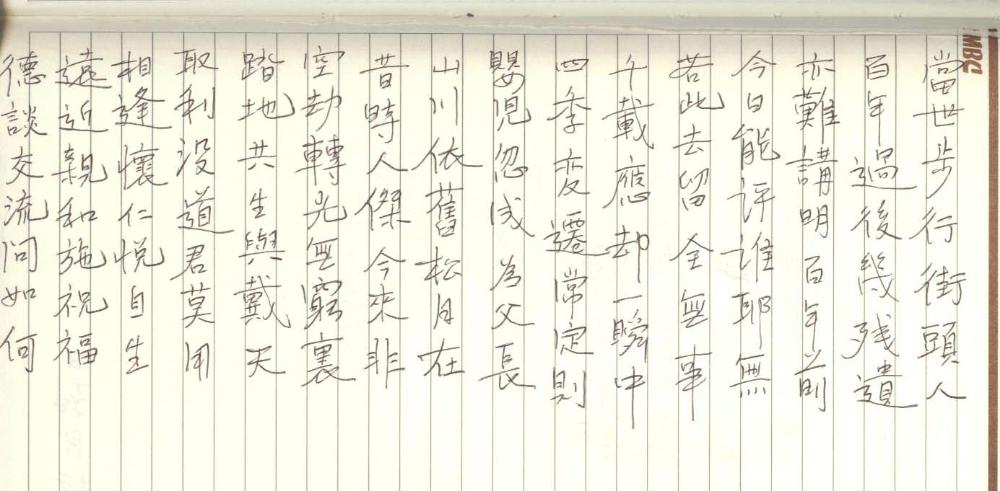 當世步行街頭人
百年過後幾殘遺
亦難講明百年前
今日能評誰耶無
若此去留全無事
千載應却一瞬中
四季変遷常定則
嬰児忽成為父長
山川依舊松月在
昔時人傑今來非
空劫轉光無窮裏
踏地共生與戴天
取利没道君莫用
相逢懷仁悦自生
遠近親和施祝福
德談交流問如何
MBC